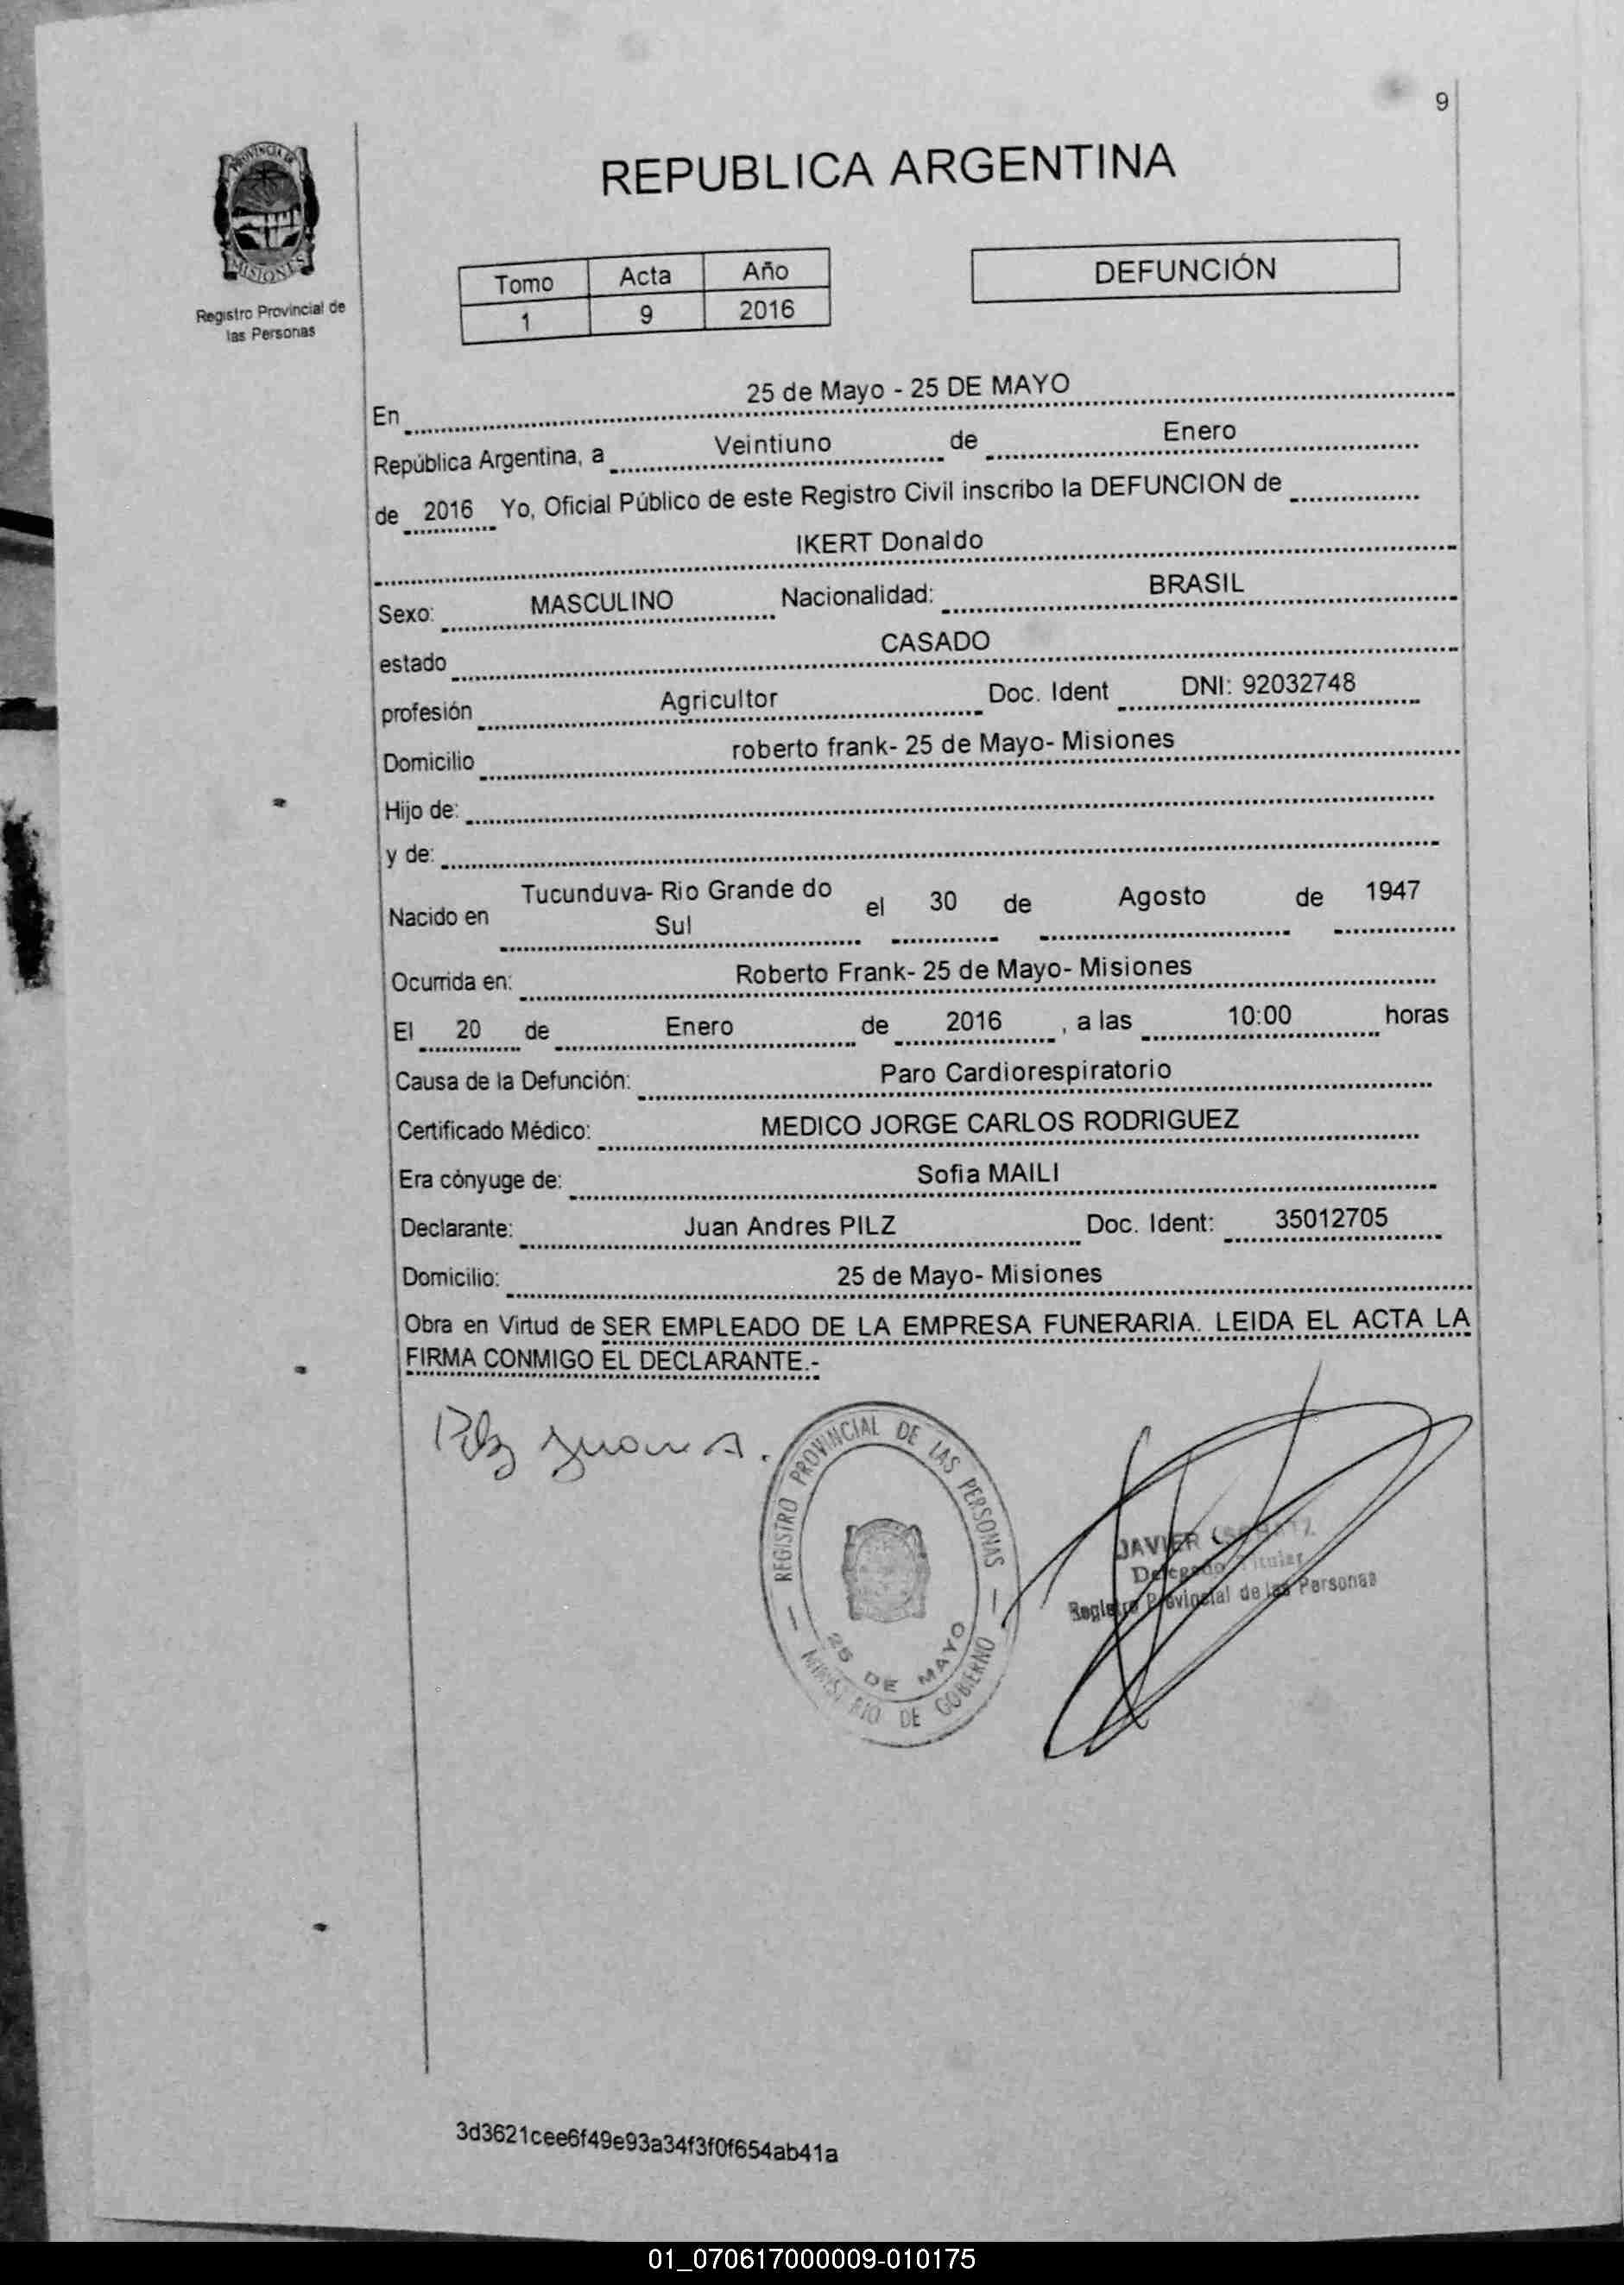 9
PROVINCIA DE
MISIONES
Registro Provincial de
las Personas
REPUBLICA ARGENTINA
Tomo Acta Año
1 9 2016
DEFUNCIÓN
En 25 de Mayo - 25 DE MAYO
República Argentina, a Veintiuno de Enero
de 2016 Yo, Oficial Público de este Registro Civil inscribo la DEFUNCION de
IKERT Donaldo
Sexo: MASCULINO Nacionalidad: BRASIL
estado CASADO
profesión Agricultor Doc. Ident DNI: 92032748
Domicilio roberto frank- 25 de Mayo- Misiones
Hijo de:
y de:
Nacido en Tucunduva- Rio Grande do
Sul el 30 de Agosto de 1947
Ocurrida en: Roberto Frank- 25 de Mayo- Misiones
El 20 de Enero de 2016 , a las 10:00 horas
Causa de la Defunción: Paro Cardiorespiratorio
Certificado Médico: MEDICO JORGE CARLOS RODRIGUEZ
Era cónyuge de: Sofia MAILI
Declarante: Juan Andres PILZ Doc. Ident: 35012705
Domicilio: 25 de Mayo- Misiones
Obra en Virtud de SER EMPLEADO DE LA EMPRESA FUNERARIA. LEIDA EL ACTA LA
FIRMA CONMIGO EL DECLARANTE.-
Pilz Juan A.
REGISTRO PROVINCIAL DE LAS PERSONAS
25 DE MAYO
MINISTERIO DE GOBIERNO
JAVIER
Delegado Titular
Registro Provincial de las Personas
3d3621cee6f49e93a34f3f0f654ab41a
01_070617000009-010175